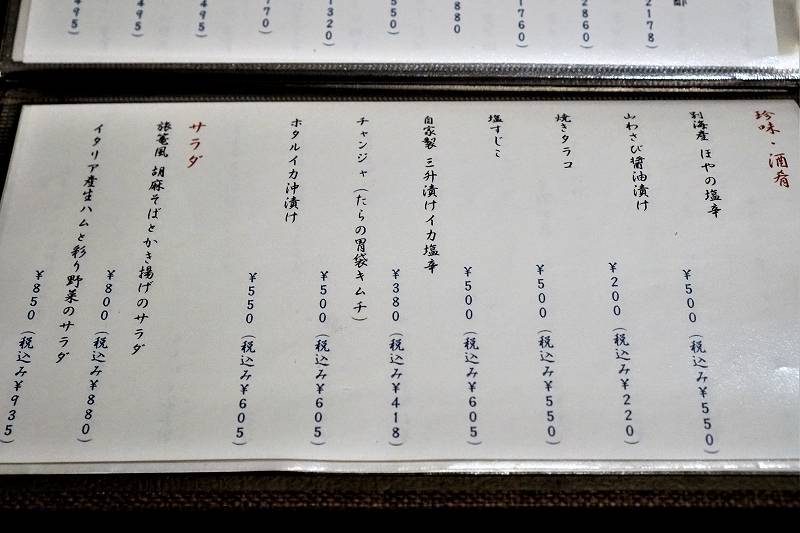 2178)
2860)
1760)
880
550
1320)
70)
495)
495)
495)
珍味・酒肴
別海産 ほやの塩辛 ¥500(税込み¥550)
山わさび醤油漬け ¥200(税込み¥220)
焼きタラコ ¥500(税込み¥550)
塩すじこ ¥500(税込み¥605)
自家製 三升漬けイカ塩辛 ¥380(税込み¥418)
チャンジャ(たらの胃袋キムチ) ¥500(税込み¥605)
ホタルイカ沖漬け ¥550(税込み¥605)
サラダ
旅篭風 胡麻そばとかき揚げのサラダ ¥800(税込み¥880)
イタリア産生ハムと彩り野菜のサラダ ¥850(税込み¥935)